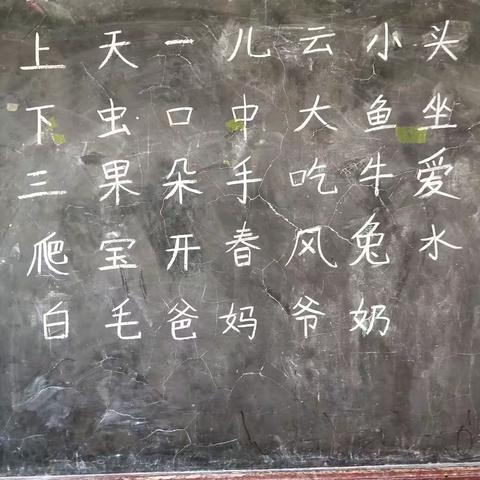 上 天 一 儿 云 小 头
下 虫 口 中 大 鱼 坐
三 果 朵 手 吃 牛 爱
爬 宝 开 春 风 兔 水
白 毛 爸 妈 爷 奶